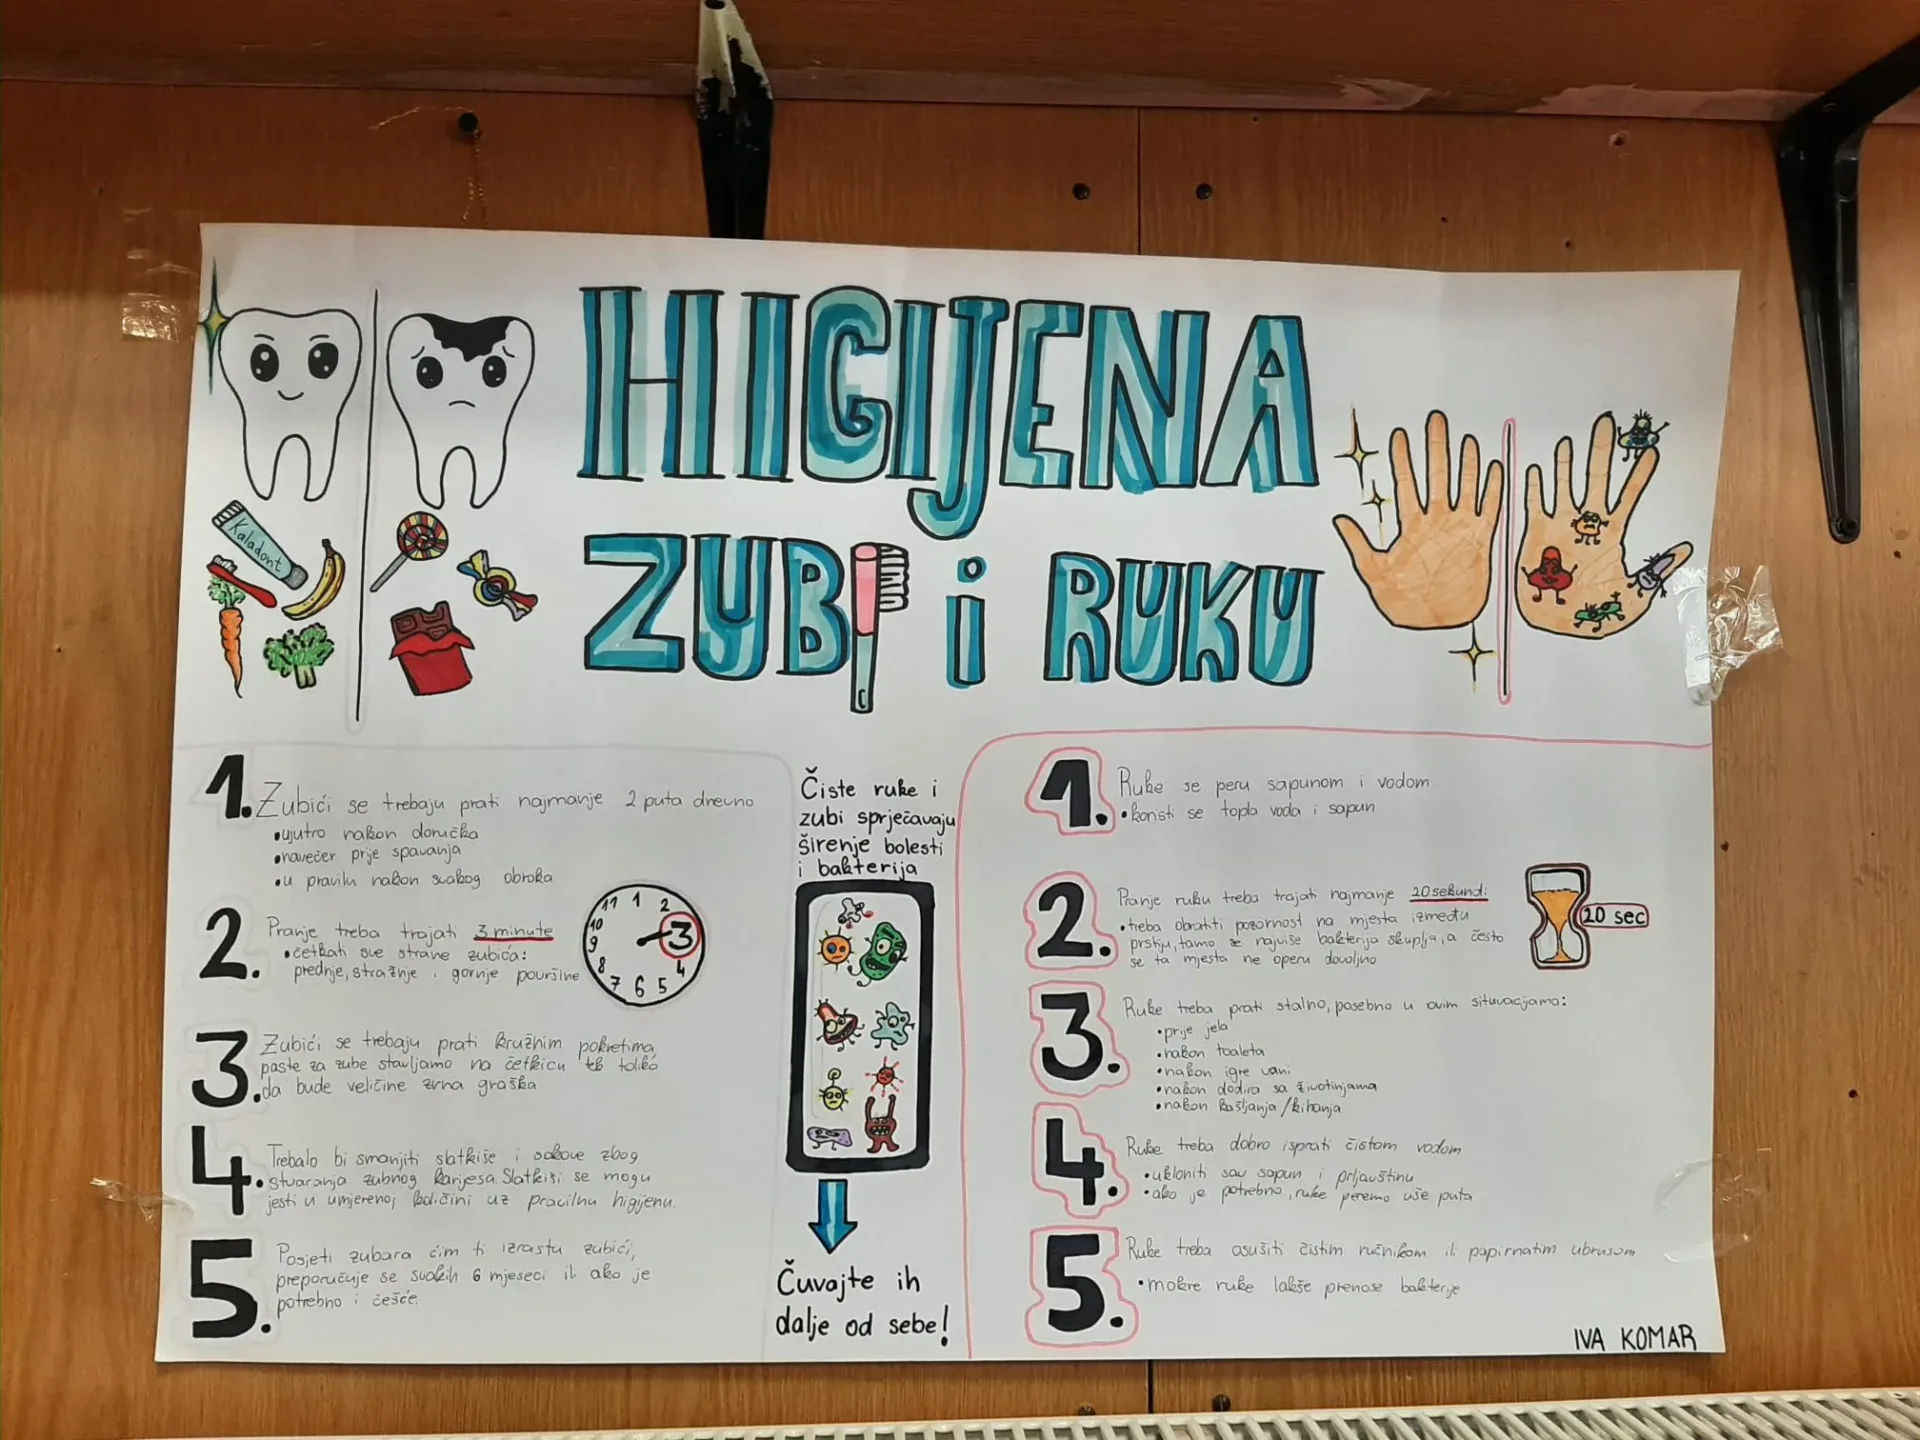 HIGIJENA
ZUBI i RUKU
Kaladont
1. Zubići se trebaju prati najmanje 2 puta dnevno
•ujutro nakon doručka
•navečer prije spavanja
•u pravilu nakon svakog obroka
2. Pranje treba trajati 3 minute
•četkati sve strane zubića:
prednje, stražnje i gornje površine
11 1 2
10 3
9 4
8 7 6 5
3. Zubići se trebaju prati kružnim pokretima
paste za zube stavljamo na četkicu toliko
da bude veličine zrna graška
4. Trebalo bi smanjiti slatkiše i sokove zbog
stvaranja zubnog karijesa. Slatkiši se mogu
jesti u umjerenoj količini uz pravilnu higijenu.
5. Posjeti zubara čim ti izrastu zubići,
preporučuje se svakih 6 mjeseci ili ako je
potrebno i češće.
Čiste ruke i
zubi sprječavaju
širenje bolesti
i bakterija
Čuvajte ih
dalje od sebe!
1. Ruke se peru sapunom i vodom
•koristi se topla voda i sapun
2. Pranje ruku treba trajati najmanje 20 sekundi
•treba obratiti pozornost na mjesta između
prstiju, tamo se najviše bakterija skuplja, a često
se ta mjesta ne operu dovoljno
20 sec
3. Ruke treba prati stalno, posebno u ovim situvacijama:
•prije jela
•nakon toaleta
•nakon igre vani
•nakon dodira sa životinjama
•nakon kašljanja/kihanja
4. Ruke treba dobro isprati čistom vodom
•ukloniti sav sapun i prljavštinu
•ako je potrebno, ruke peremo više puta
5. Ruke treba osušiti čistim ručnikom ili papirnatim ubrusom
•mokre ruke lakše prenose bakterije
IVA KOMAR